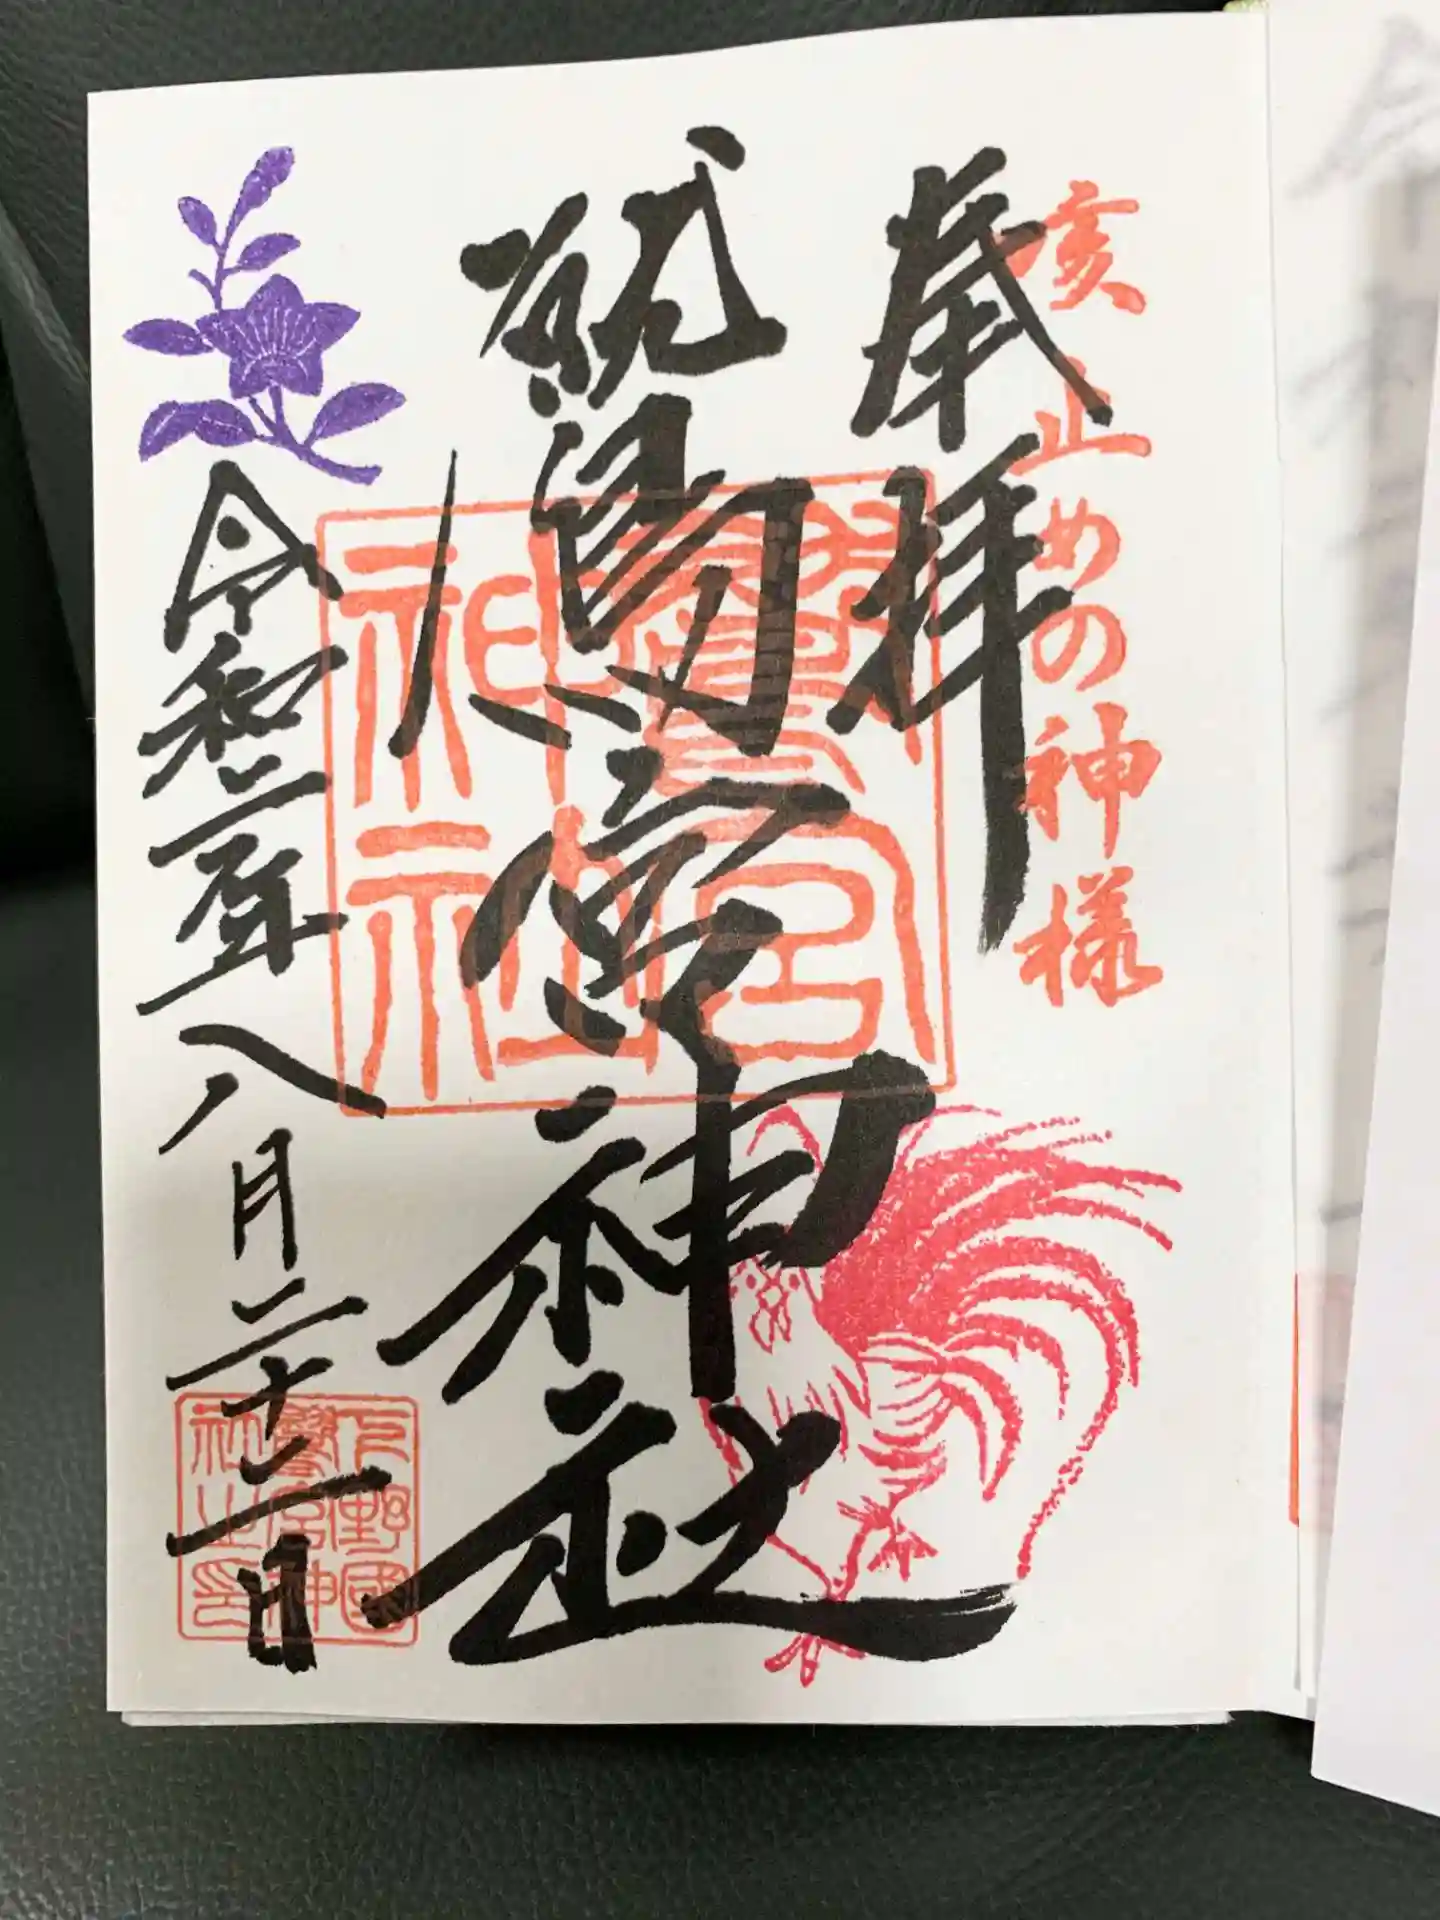 咳止めの神様
奉拝
鷲宮神社
鷲宮
神社
令和二年八月二十二日
下野國
鷲宮神
社之印